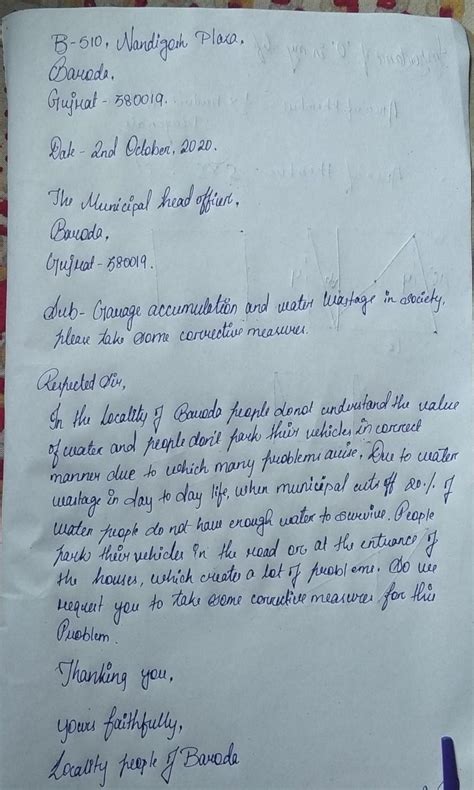 B-510, Nandigosh Plaza,
Baroda,
Gujrat - 380019.
Date - 2nd October, 2020.
The Municipal head officer,
Baroda,
Gujrat - 380019.
Sub- Garage accumulation and water wastage in society,
please take some corrective measures.
Respected Sir,
In the locality of Baroda people donot understand the value
of water and people don't park their vehicles in correct
manner due to which many problems arise. Due to water
wastage in day to day life, when municipal cuts off 20% of
water people do not have enough water to survive. People
park their vehicles in the road or at the entrance of
the houses, which creates a lot of problems. So we
request you to take some corrective measures for this
Problem.
Thanking you,
yours faithfully,
Locality people of Baroda